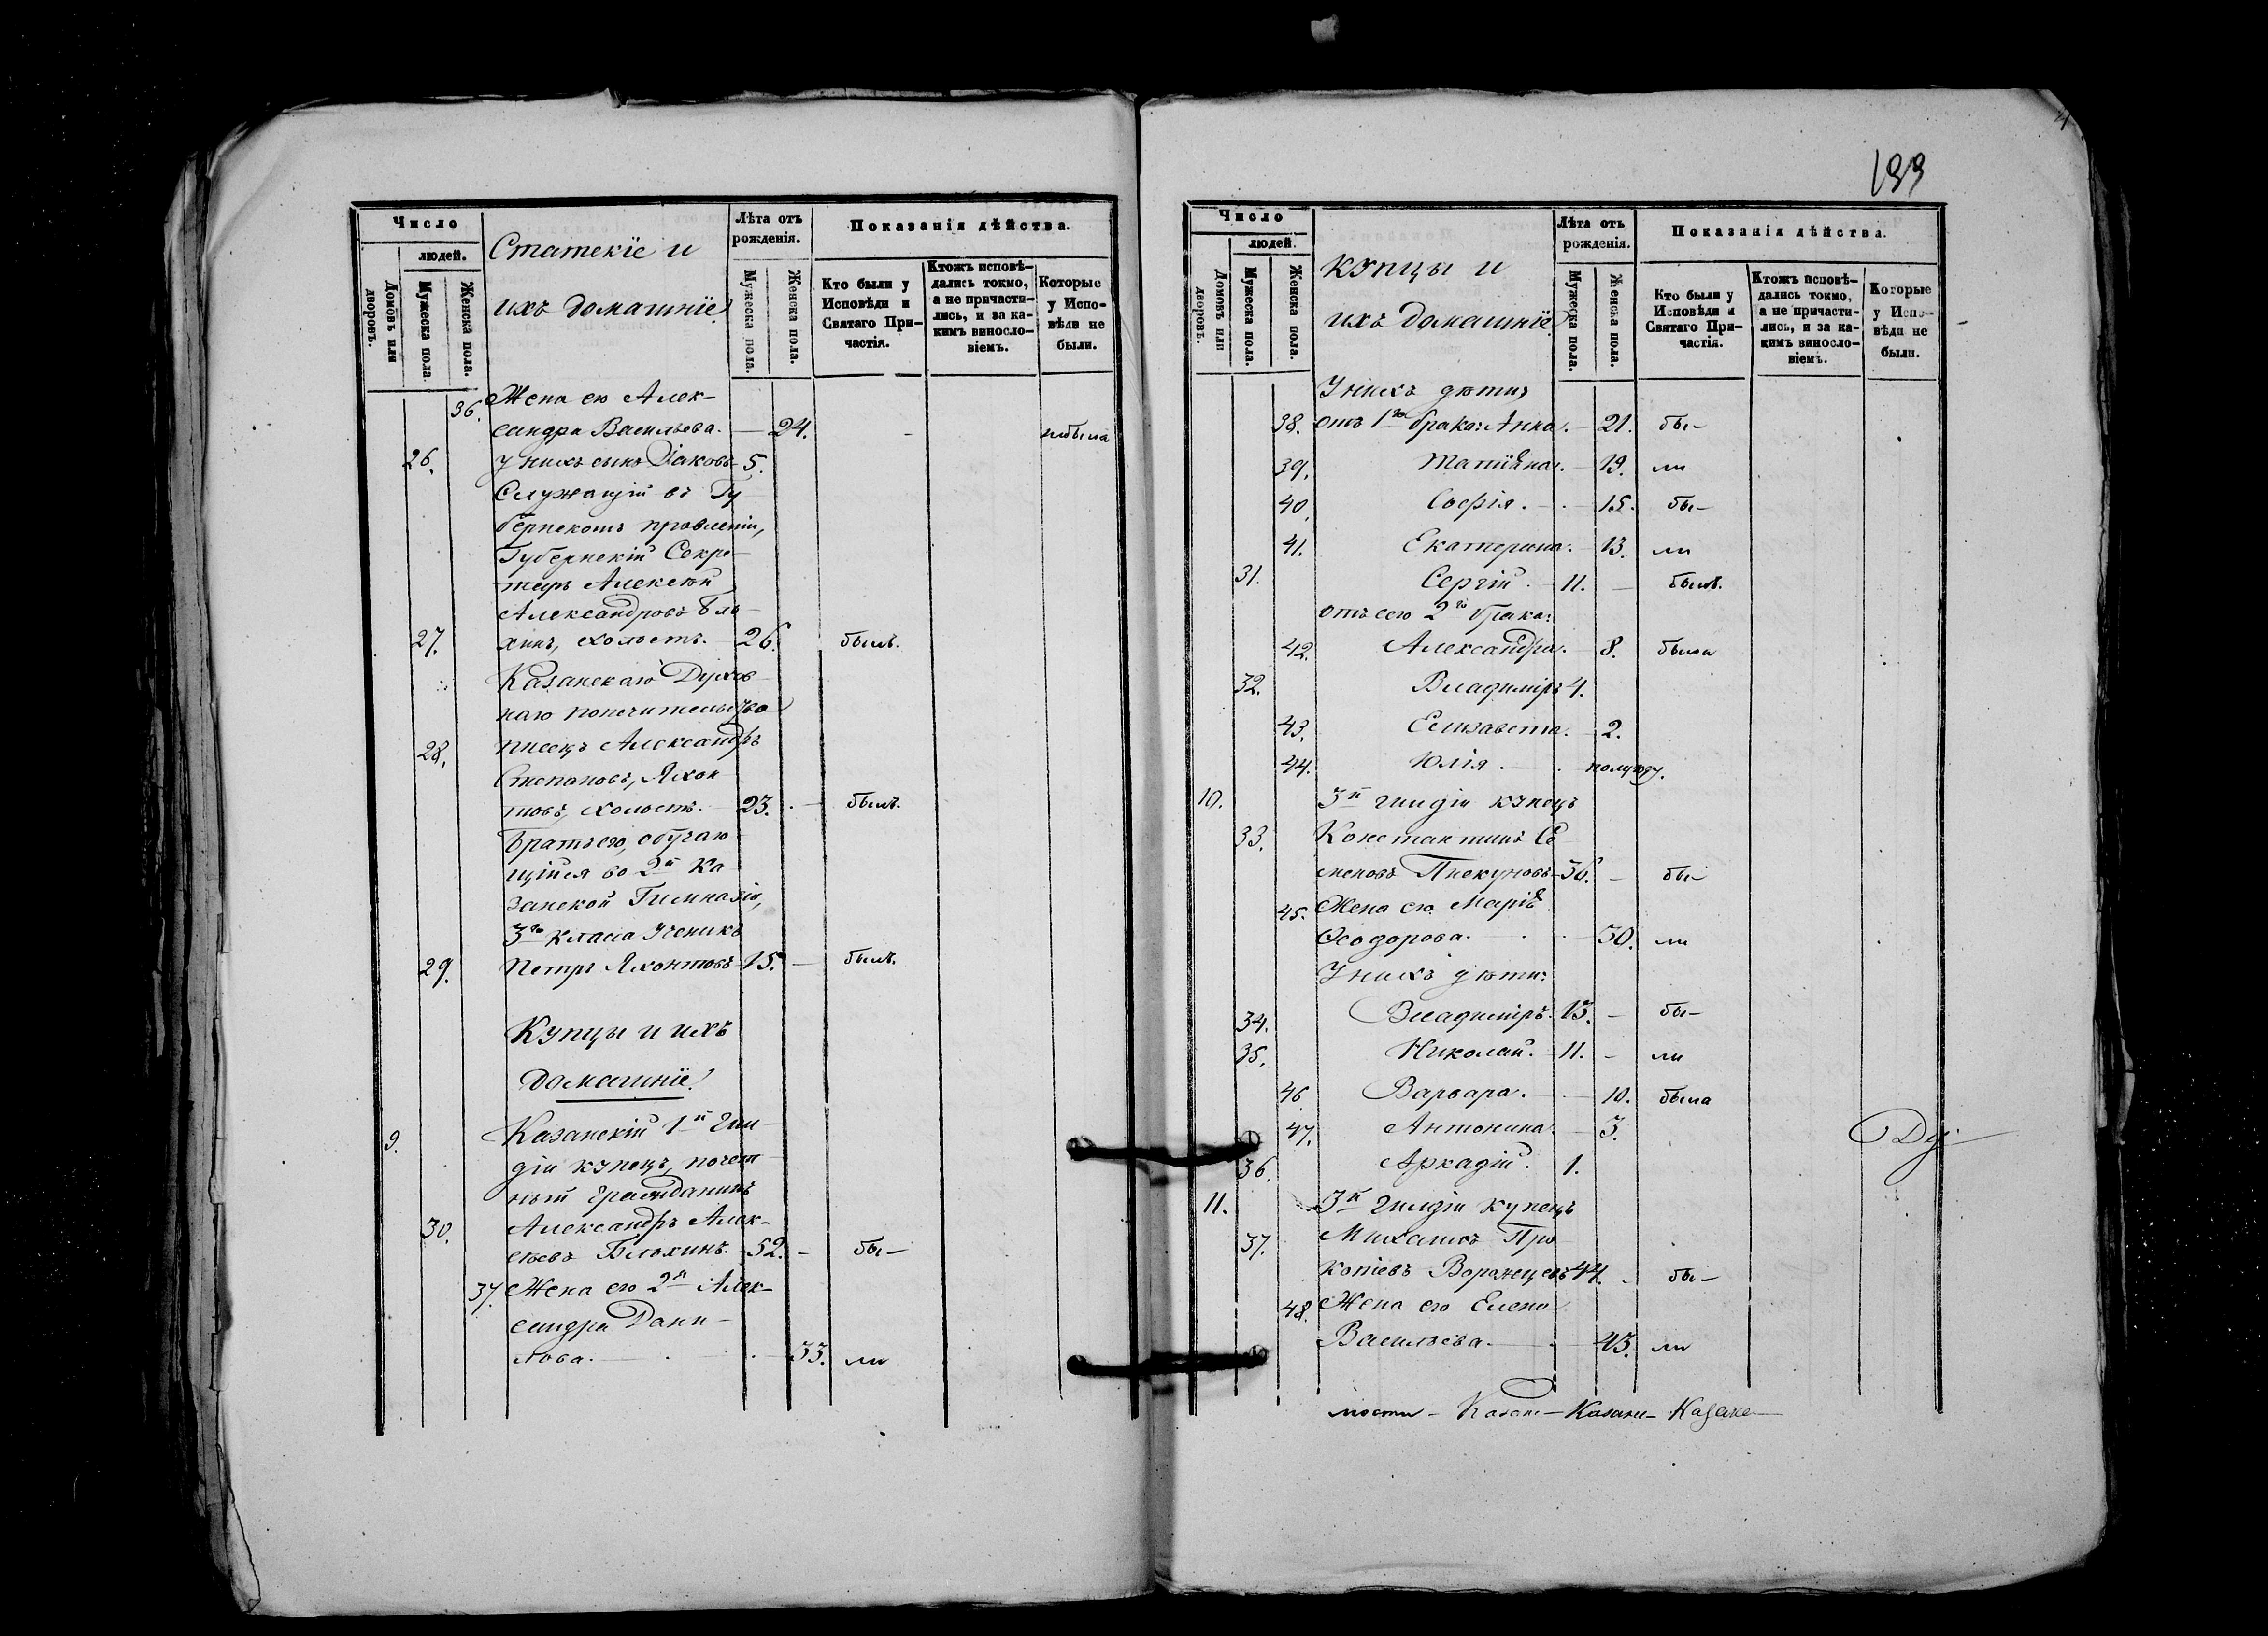 Число
людей.
Домовъ или дворовъ.
Мужеска пола
Женска пола.
Статскіе и
ихъ домашніе.
Лѣта отъ рожденія.
Мужеска пола.
Женска пола.
Показанія дѣйства.
Кто были у Исповѣди и Святаго Причастія.
Ктожъ исповѣдались токмо, а не причастились, и за какимъ винословіемъ.
Которые у Исповѣди не были.
36. Жена его Алек-
сандра Васильева. — 24. небыла
26. У нихъ сынъ Іаковъ 5.
Служащій въ Гу
бернскомъ правленіи,
Губернскій Секре-
тарь Алексѣй
Александровъ Бло-
27. хинъ, холостъ. — 26. былъ.
Казанскаго Духов-
наго попечительства
28. писецъ Александръ
Степановъ, Яхон
товъ, холостъ. — 23. былъ.
Братъ его, обучаю-
щійся во 2й Ка-
занской Гимназіи,
3го класса Ученикъ
29. Петръ Яхонтовъ 15. — былъ.
Купцы и ихъ
домашніе.
9. Казанскій 1й гил-
діи купецъ, почет-
ный гражданинъ
30. Александръ Алек-
сѣевъ Блохинъ. 52. — бы-
37. Жена его 2я Алек-
сандра Дани-
лова. — 33. ли
133
Число
людей.
Домовъ или дворовъ.
Мужеска пола.
Женска пола.
купцы и
ихъ домашніе.
Лѣта отъ рожденія.
Мужеска пола.
Женска пола.
Показанія дѣйства.
Кто были у Исповѣди и Святаго Причастія.
Ктожъ исповѣдались токмо, а не причастились, и за какимъ винословіемъ.
Которые у Исповѣди не были.
У нихъ дѣти,
38. отъ 1го брака: Анна. — 21. бы-
39. Татіана. — 19. ли
40. Софія. — 15. бы-
41. Екатерина. — 13. ли
31. Сергій. — 11. — былъ.
отъ сего 2го брака:
42. Александра. — 8. была
32. Владиміръ 4.
43. Елизавета. — 2.
44. Юлія. — полугоду.
10. 3й гилдіи купецъ
33. Константинъ Се
меновъ Пискуновъ 36. — бы-
45. Жена его Марія
Ѳеодорова. — 30. ли
У нихъ дѣти:
34. Владиміръ. 13. — бы-
35. Николай. 11. — ли
46. Варвара. — 10. была
47. Антонина. — 3.
36. Аркадій. 1.
11. 3й гилдіи купецъ
37. Михаилъ Про
копіевъ Воронцовъ 44. бы-
48. Жена его Елена
Васильева. — 43. ли
мости — Казане — Казани — Казане —